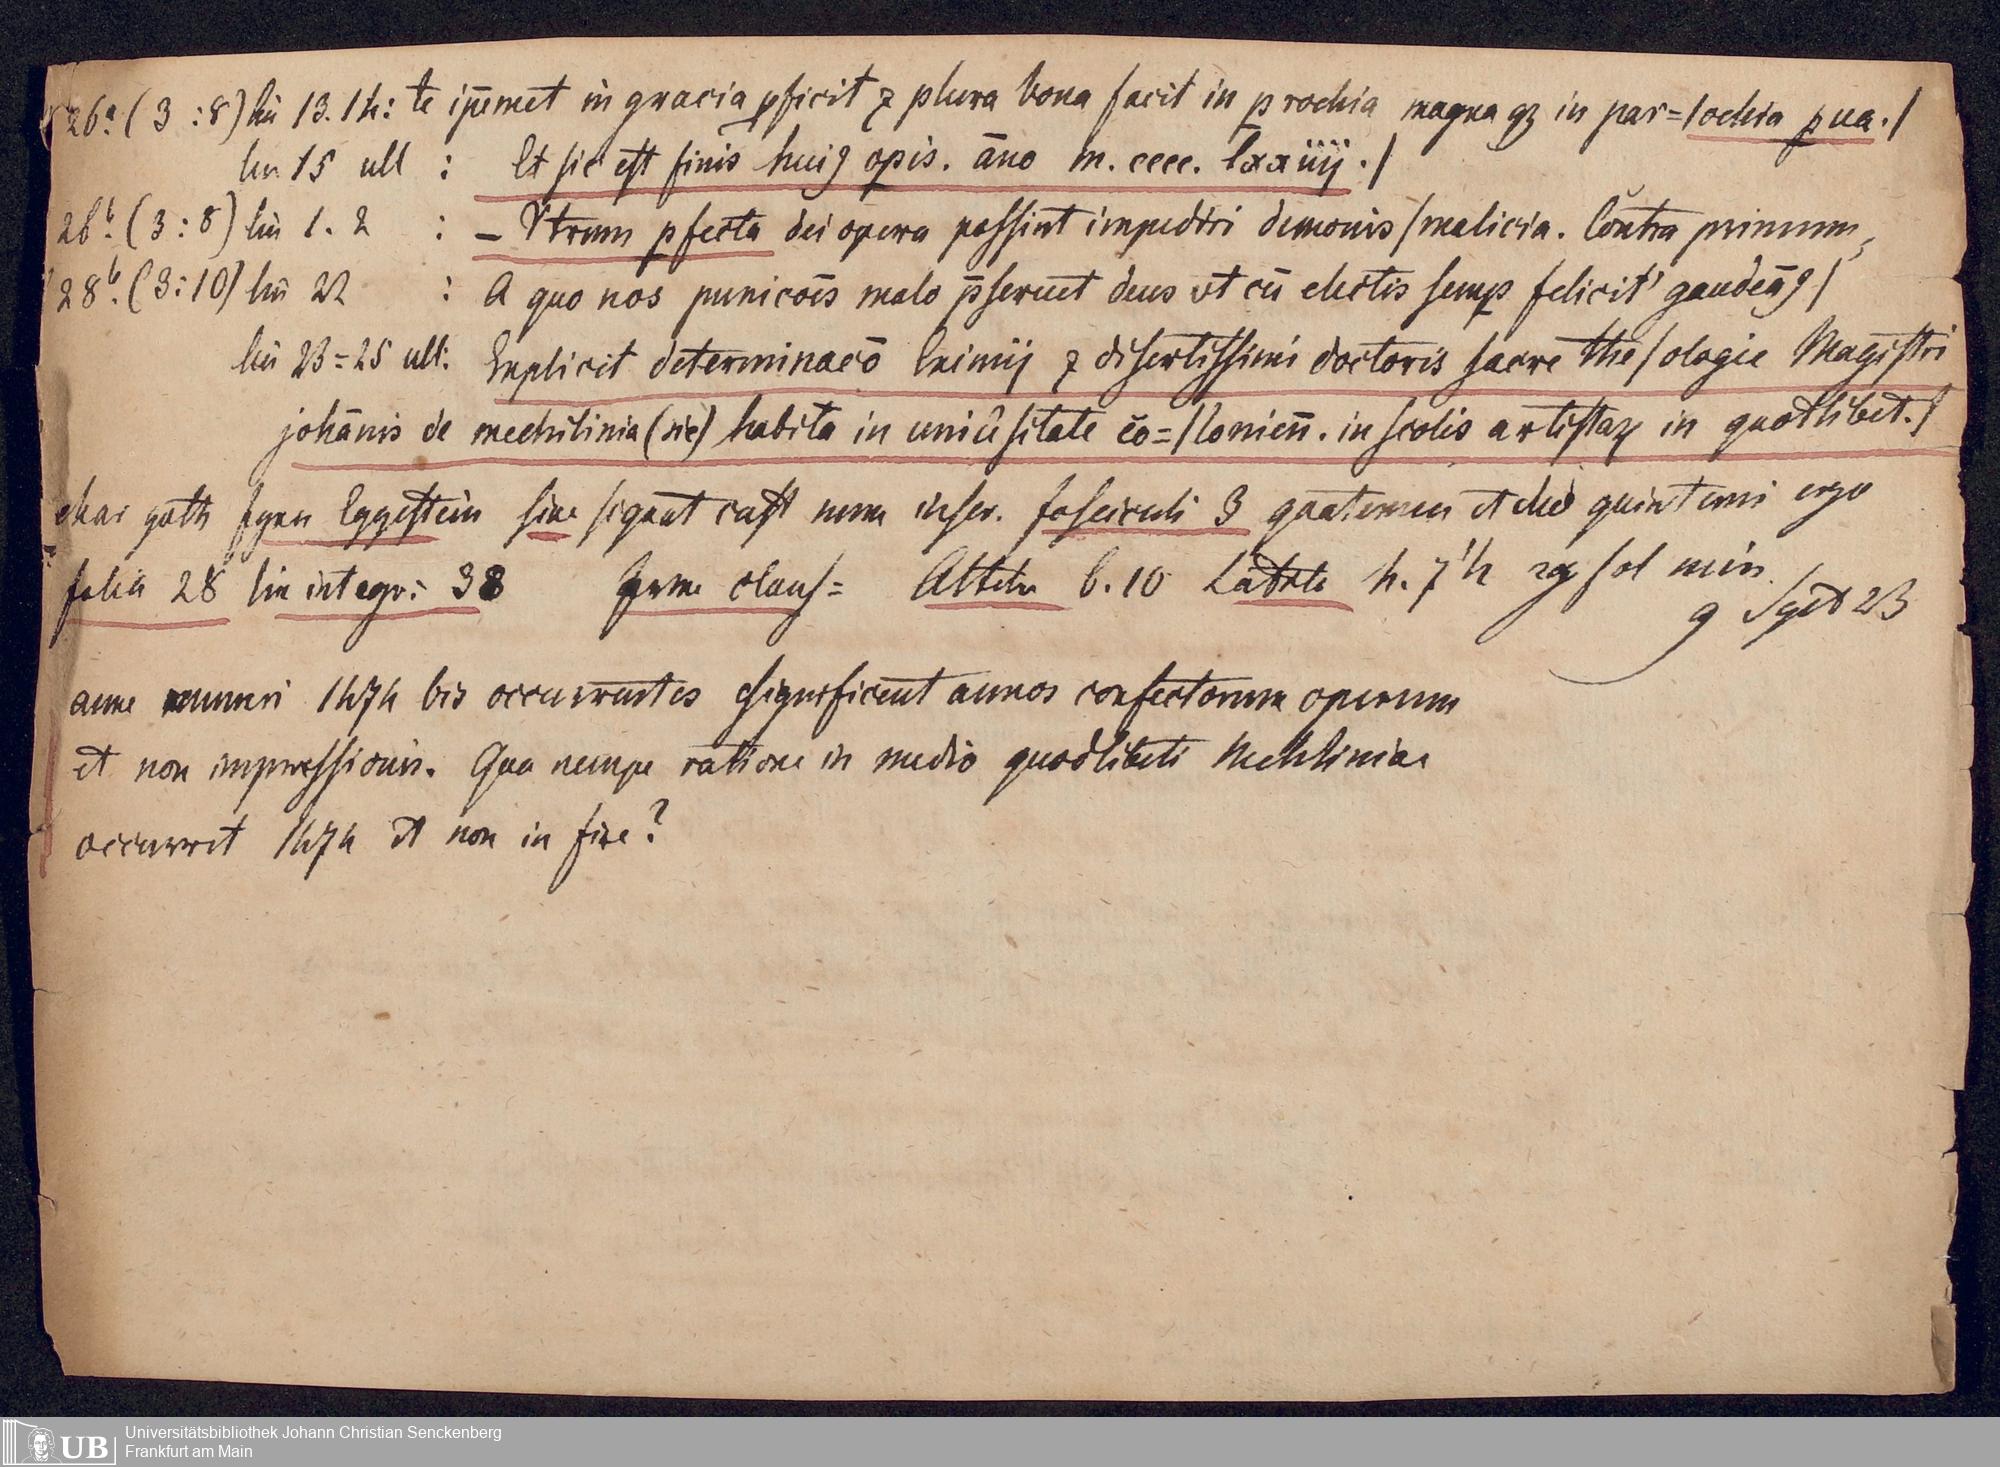 26a. (3:8) lin 13.14: te ip̄emet in gracia ꝓficit ⁊ plura bona facit in prochia magna qꝫ in par=/ochia ꝑua./
lin 15 ull : Et sic est finis huiꝰ opis. āno m. cccc. lxxiiij./
26b. (3:8) lin 1. 2 : – Vtrum ꝑfecta dei opera possint impediri demonis/malicia. Cōntra primum,
28b. (3:10) lin 22 : A quo nos punicōis malo p̄seruet deus vt cū electis semꝑ felicit' gaudeāꝰ/
lin 23=25 ull: Explicit determinacō Eximij ⁊ disertissimi doctoris sacre the/ologie Magistri
johānis de mechilinia (sic) habita in uniūsitate cō=/lonien̄. in scolis artistaꝝ in quotlibet./
char goth Eggestein sine signat cust num inser. fasciculi 3 quaterni et duo quinterni ergo
folia 28 lin integr: 38 clausʃ= b. 10 h.
9 Sept 23
anne numeri 1474 bis occurrentes significent annos confectorum operum
et non impressionis. Qua nempe ratione in medio quodlibeti Mechliniae
occurrit 1474 et non in fine?
UB Universitätsbibliothek Johann Christian Senckenberg
Frankfurt am Main